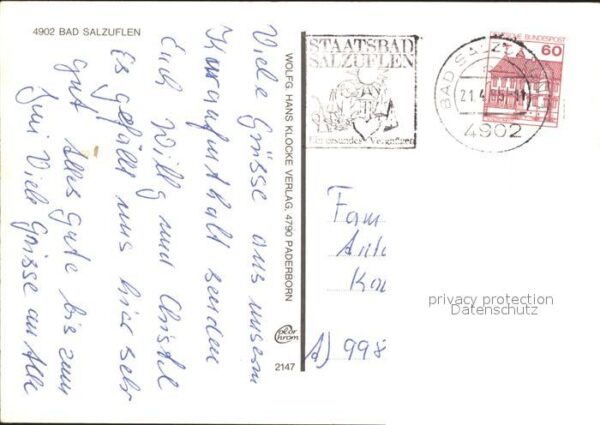 4902 BAD SALZUFLEN
Viele Grüsse aus unserem
Kuraufenthalt senden
Euch Willy und Christel
Es gefällt uns hier sehr
gut Alles gute bis zum
Juni Viele Grüsse an Alle
WOLFG. HANS KLOCKE VERLAG, 4790 PADERBORN
color chrom
2147
STAATSBAD
SALZUFLEN
Ein gesundes Vergnügen
BAD SALZ
21.4. -11
4902
DEUTSCHE BUNDESPOST
60
Fam
privacy protection
Datenschutz
998